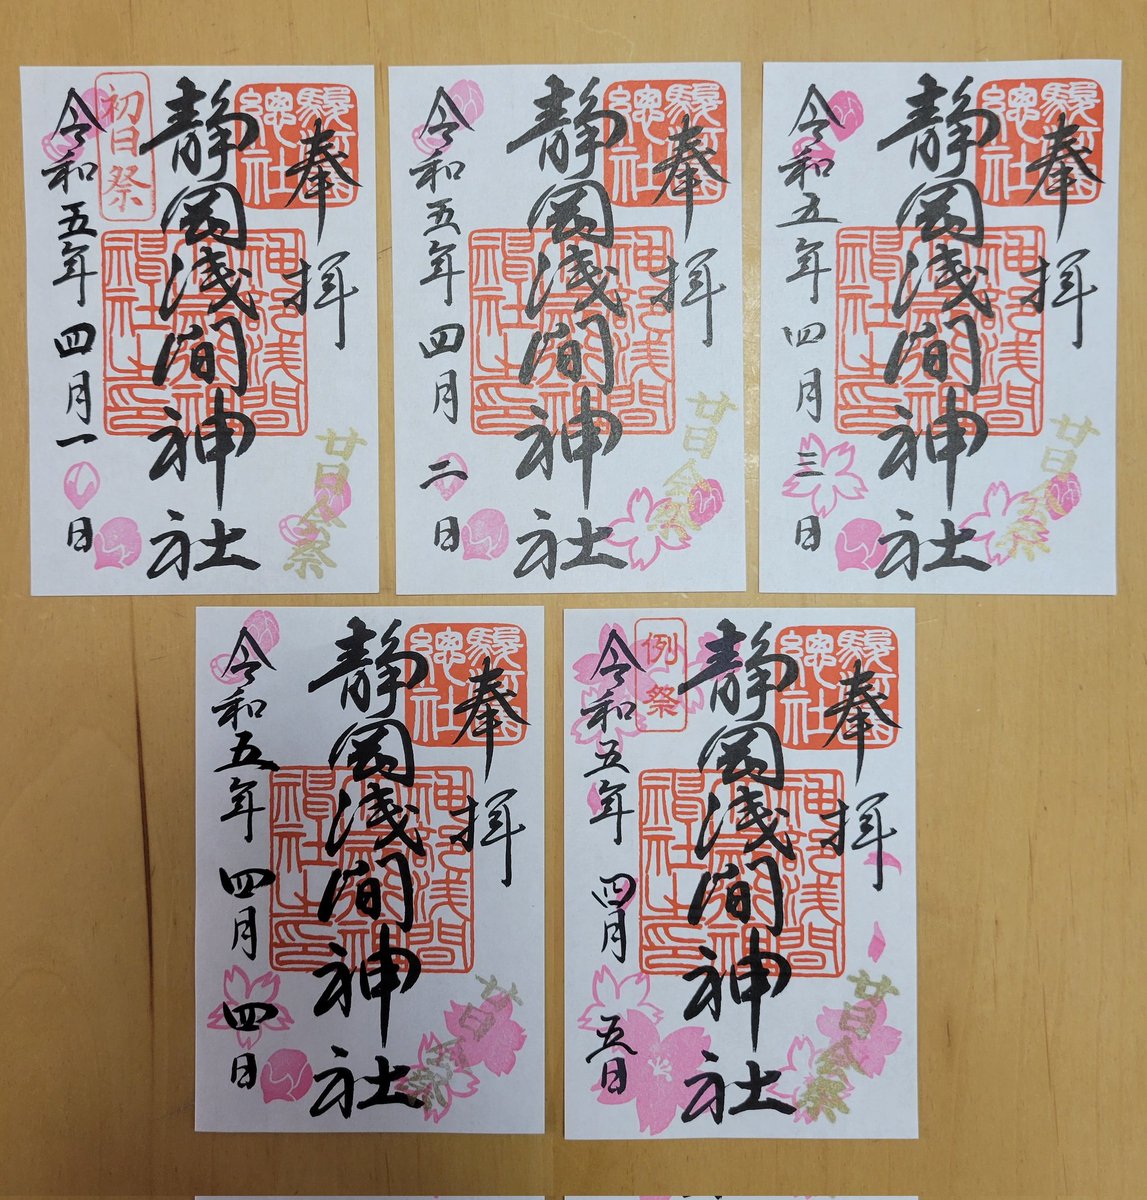 奉拝
駿府總社
静岡浅間神社
神部浅間
初日祭
令和五年四月一日
廿日会祭
奉拝
駿府總社
静岡浅間神社
神部浅間
令和五年四月二日
廿日会祭
奉拝
駿府總社
静岡浅間神社
神部浅間
令和五年四月三日
廿日会祭
奉拝
駿府總社
静岡浅間神社
神部浅間
令和五年四月四日
廿日会祭
奉拝
駿府總社
静岡浅間神社
神部浅間
例祭
令和五年四月五日
廿日会祭